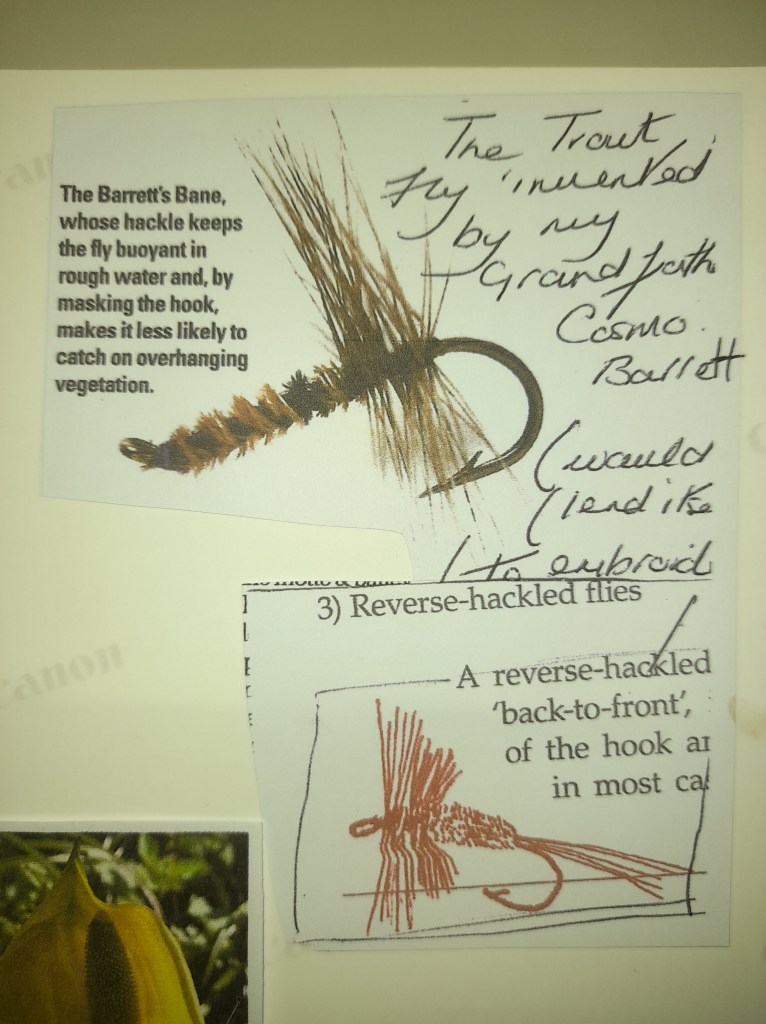 The Barrett's Bane,
whose hackle keeps
the fly buoyant in
rough water and, by
masking the hook,
makes it less likely to
catch on overhanging
vegetation.
The Trout
Fly invented
by my
Grandfath
Cosmo.
Barrett
(would
(lend itse
(to embroid
3) Reverse-hackled flies
A reverse-hackled
'back-to-front',
of the hook ar
in most ca
Canon